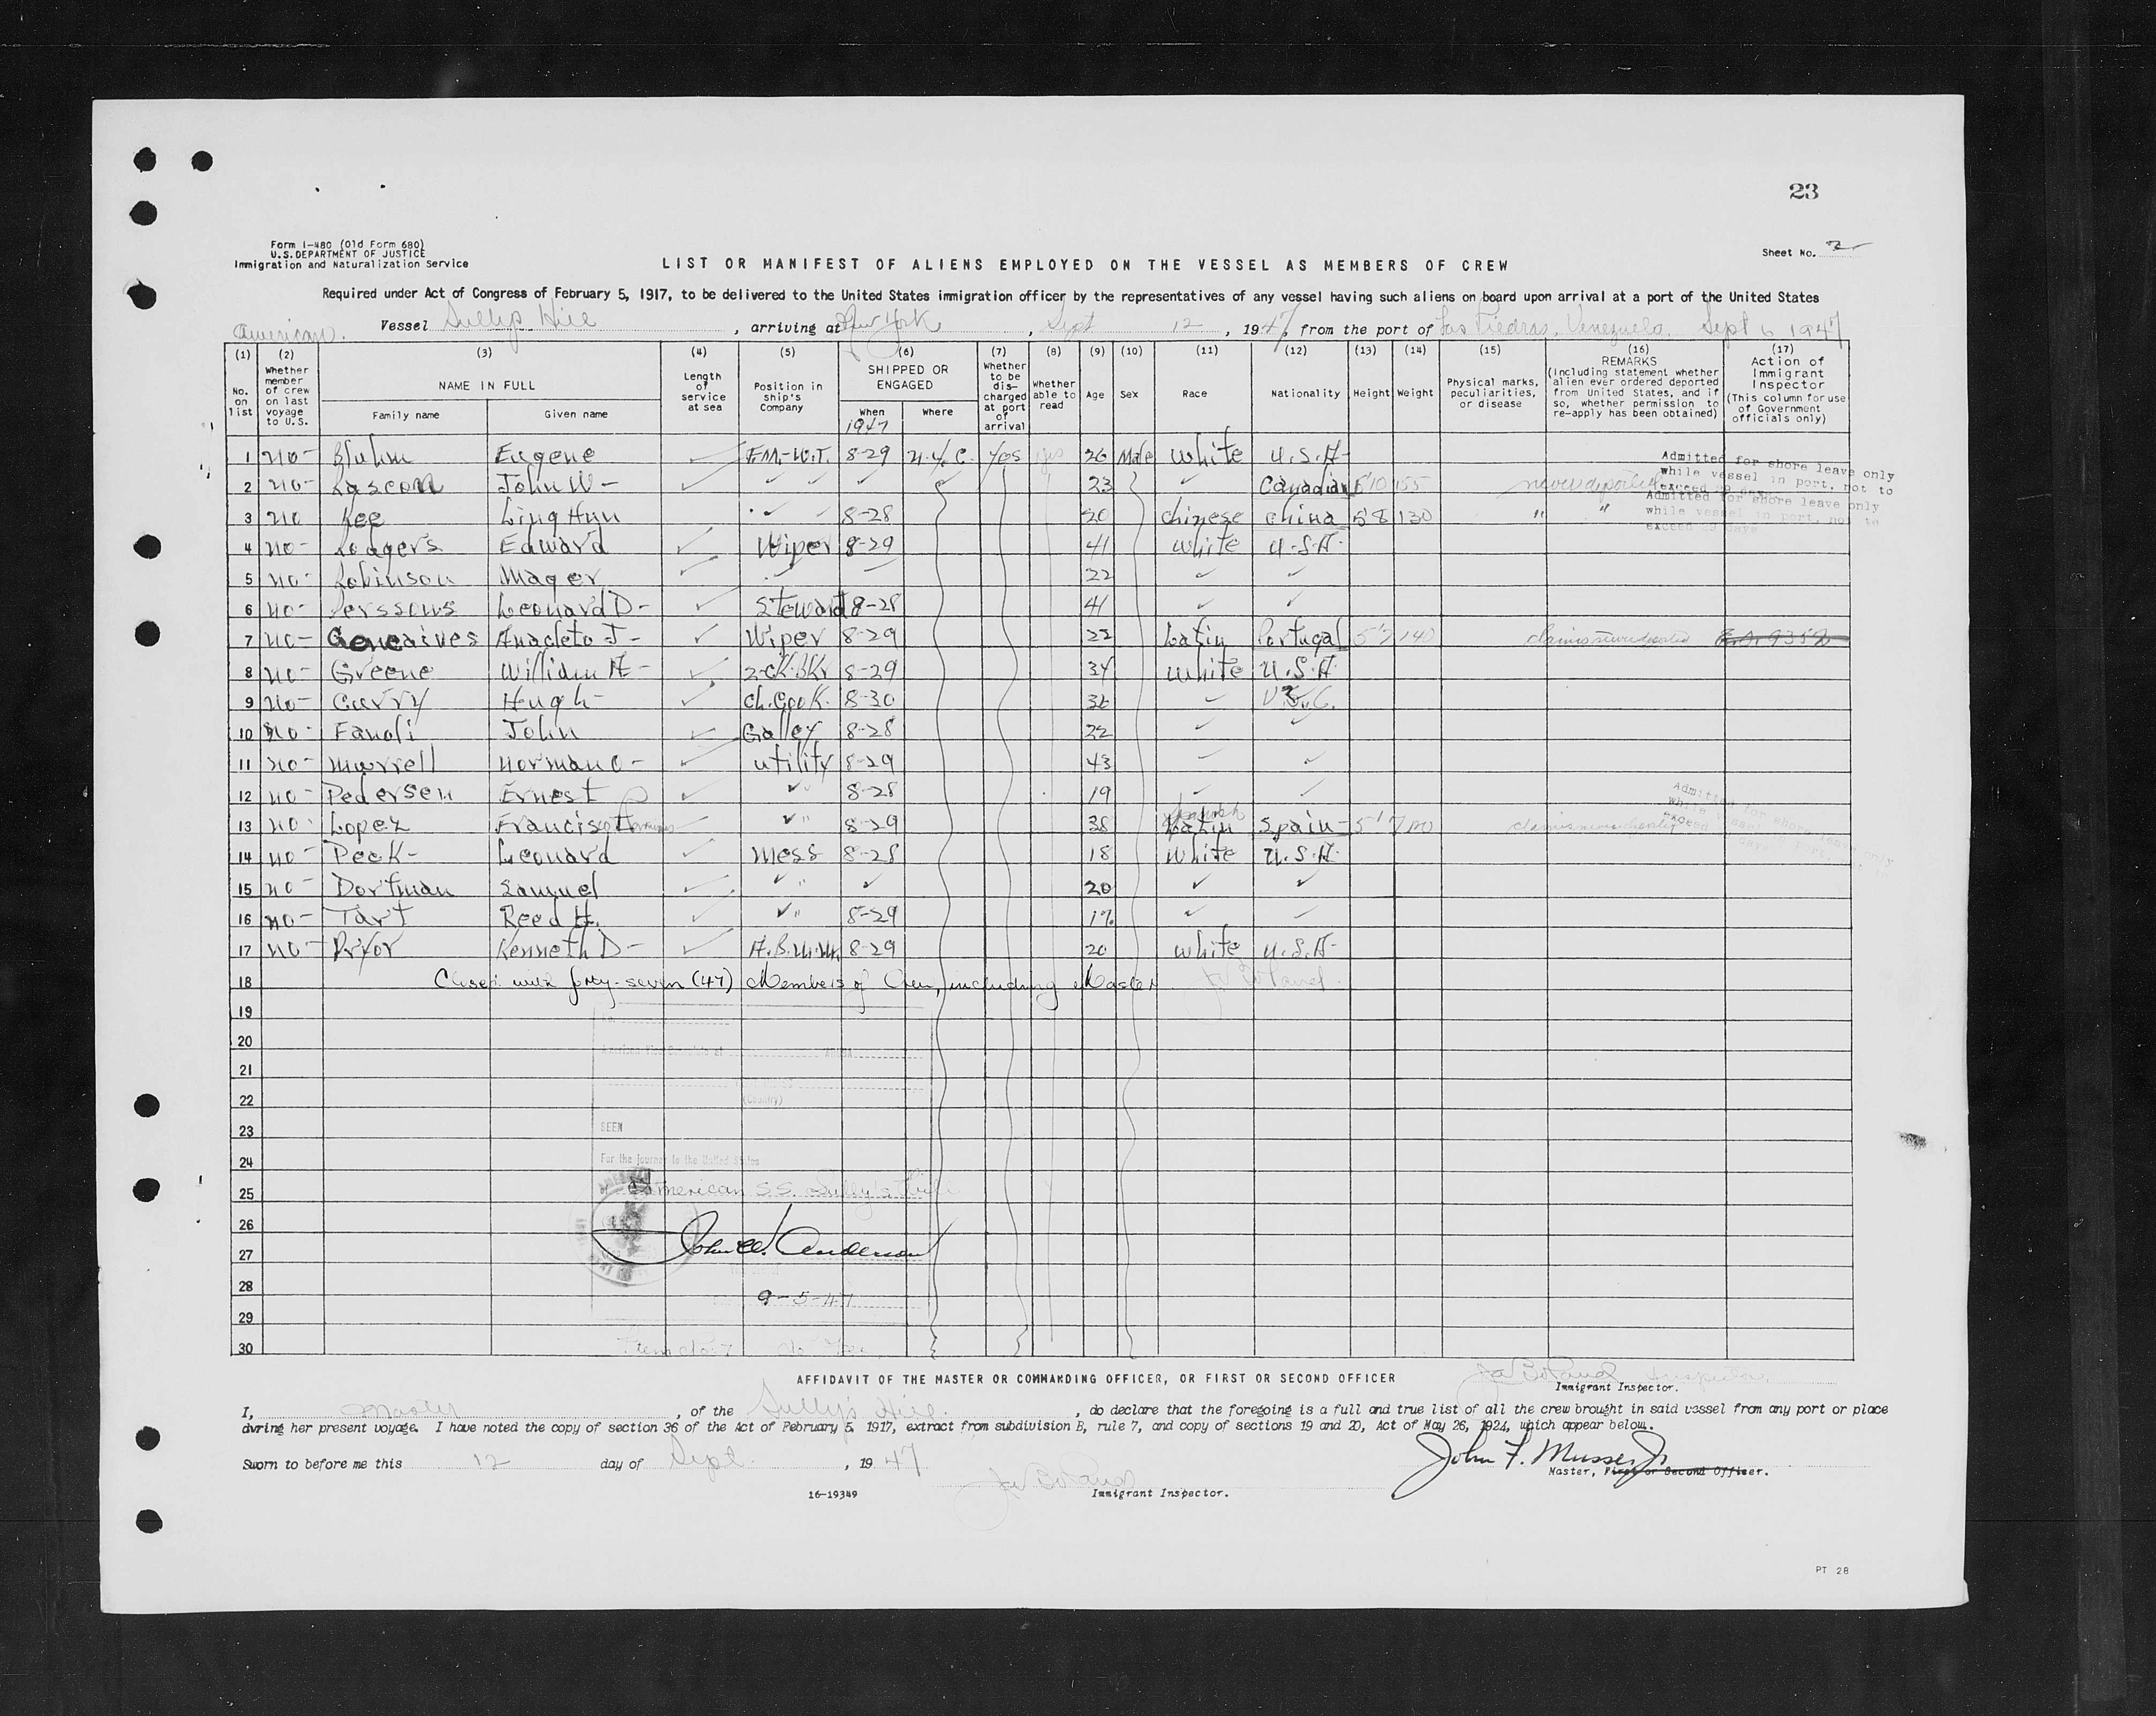 23
Form I-480 (Old Form 680)
U.S. DEPARTMENT OF JUSTICE
Immigration and Naturalization Service
Sheet No. 2
LIST OR MANIFEST OF ALIENS EMPLOYED ON THE VESSEL AS MEMBERS OF CREW
Required under Act of Congress of February 5, 1917, to be delivered to the United States immigration officer by the representatives of any vessel having such aliens on board upon arrival at a port of the United States
American. Vessel Sullys Hill, arriving at New York, Sept 12, 1947, from the port of Las Piedras, Venezuela, Sept 6 1947
(1) (2) (3) (4) (5) (6) (7) (8) (9) (10) (11) (12) (13) (14) (15) (16) (17)
No. on list
Whether member of crew on last voyage to U.S.
NAME IN FULL
Family name Given name
Length of service at sea
Position in ship's Company
SHIPPED OR ENGAGED
When 1947 Where
Whether to be discharged at port of arrival
Whether able to read
Age Sex Race Nationality Height Weight
Physical marks, peculiarities, or disease
REMARKS (Including statement whether alien ever ordered deported from United States, and if so, whether permission to re-apply has been obtained)
Action of Immigrant Inspector (This column for use of Government officials only)
1 no- Bluhm Eugene ✓ F.M.-W.T. 8-29 N.Y.C. Yes yes 26 Male White U.S.A-
2 no- John W- ✓ ✓ ✓ 23 ✓ Canadian 5'10 155 never deported Admitted for shore leave only while vessel in port, not to exceed 29 days
3 no Kee Ling Hyn ✓ ✓ 8-28 20 Chinese China 5'8 130 " " Admitted for shore leave only while vessel in port, not to exceed 29 days
4 no- Rodgers Edward ✓ Wiper 8-29 41 White U.S.A-
5 no- Robinson Mager ✓ ✓ 22 ✓ ✓
6 no- Perssons Leonard D- ✓ Steward 8-28 41 ✓ ✓
7 no- Goncalves Anacleto J- ✓ Wiper 8-29 22 Latin Portugal 5'7 140 claims never deported
8 no- Greene William H- ✓ 2-CK.BKr 8-29 34 White U.S.A
9 no- Curry Hugh- ✓ Ch. Cook. 8-30 36 ✓ U.S.C.
10 no- Fanoli John ✓ Galley 8-28 22 ✓ ✓
11 no- Murrell Norman C- ✓ utility 8-29 43 ✓ ✓
12 no- Pedersen Ernest ✓ ✓ " 8-28 19 ✓ ✓
13 no- Lopez Francisco ✓ ✓ " 8-29 38 Spanish Latin Spain- 5'7 claims never deported Admitted for shore leave only while vessel in port,
14 no- Peck- Leonard ✓ Mess 8-28 18 White U.S.A-
15 no- Dorfman Samuel ✓ ✓ " ✓ 20 ✓ ✓
16 no- Tart Reed H. ✓ ✓ " 8-29 17 ✓ ✓
17 no- Pryor Kenneth D- ✓ A.B.M.M. 8-29 20 White U.S.A-
18 Closed with forty-seven (47) Members of Crew, including Master
19
20
American Vice Consulate at
21
22 (Country)
23 SEEN
24 For the journey to the United States
25 American S.S. Sully's Hill
26
27 John W. Anderson
28 9-5-47
29
30
AFFIDAVIT OF THE MASTER OR COMMANDING OFFICER, OR FIRST OR SECOND OFFICER
Immigrant Inspector.
I, Master, of the Sully's Hill, do declare that the foregoing is a full and true list of all the crew brought in said vessel from any port or place
during her present voyage. I have noted the copy of section 36 of the Act of February 5, 1917, extract from subdivision B, rule 7, and copy of sections 19 and 20, Act of May 26, 1924, which appear below.
John F. Musser Jr
Sworn to before me this 12 day of Sept., 1947
Master, First or Second Officer.
16-19349
Immigrant Inspector.
PT 28